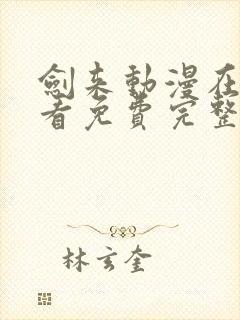 劍来動漫在
看免費完整
林玄奎